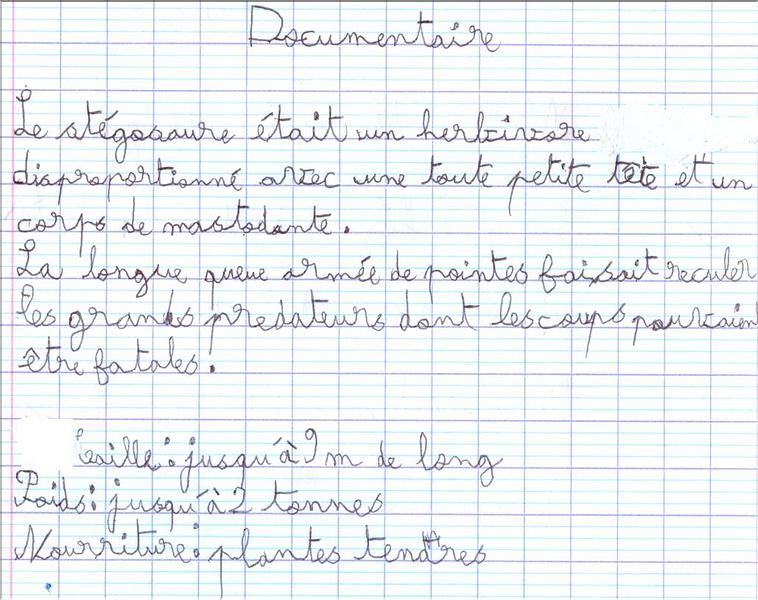 Documentaire
Le stégosaure était un herbivore
disproportionné avec une toute petite tête et un
corps de mastodante.
La longue queue armée de pointes faisait reculer
les grands predateurs dont les coups pouvaient
être fatales.
taille : jusqu'à 9 m de long
Poids : jusqu'à 2 tonnes
Nourriture : plantes tendres